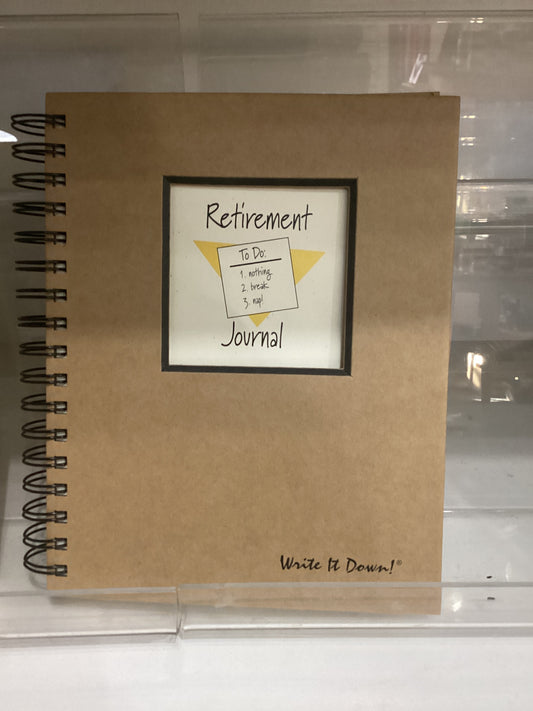 Retirement
To Do:
1. nothing
2. break
3. nap!
Journal
Write It Down!®